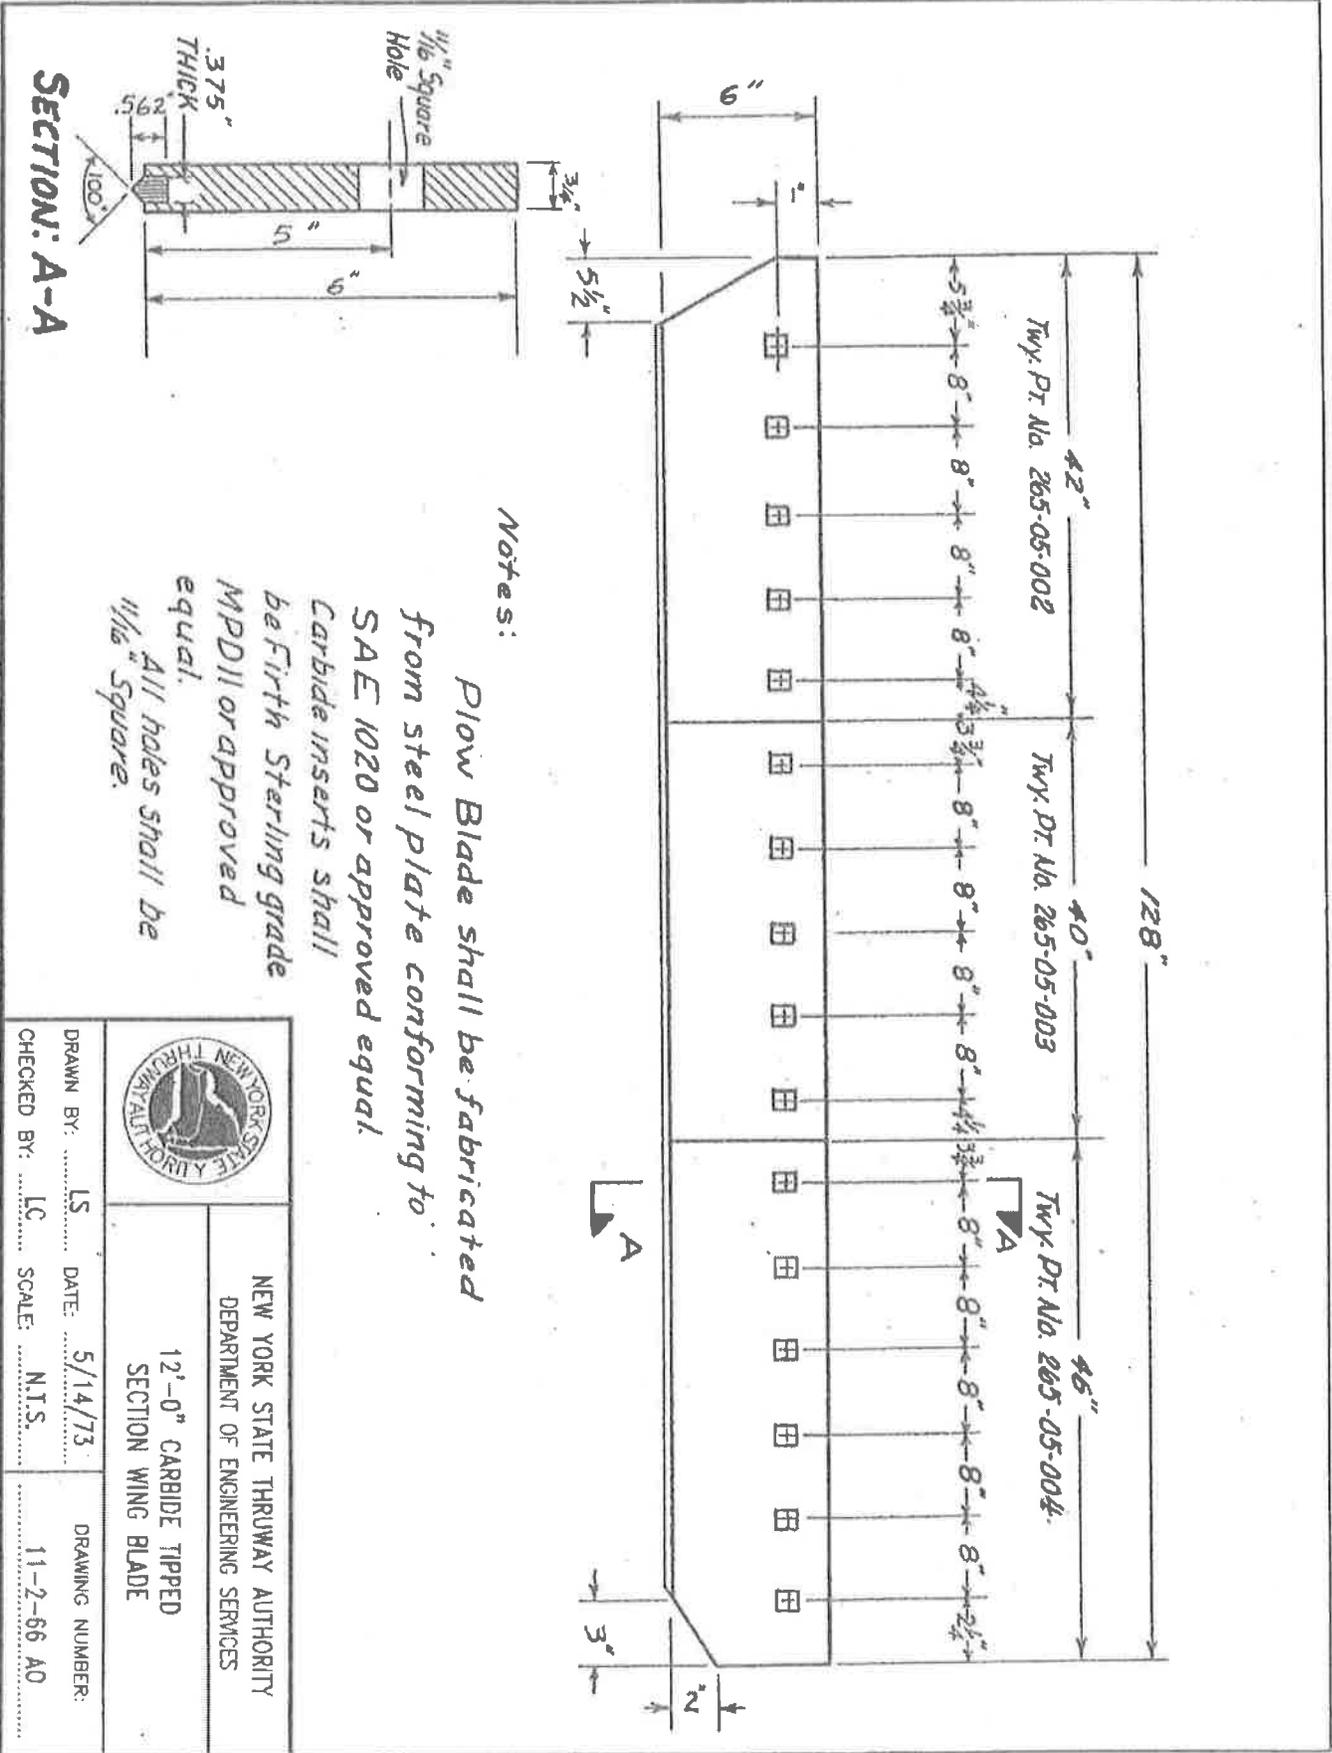 128"
42"
40"
46"
Twy. Pt. No. 265-05-002
Twy. Pt. No. 265-05-003
Twy. Pt. No. 265-05-004
5 3/4" 8" 8" 8" 8" 4 1/4" 3 3/4" 8" 8" 8" 8" 4 1/4 3 3/4 8" 8" 8" 8" 8" 2 1/4"
6"
1"
5 1/2"
3"
2"
A
A
3/4"
11/16" Square
Hole
.375"
THICK
.562"
100°
5"
6"
SECTION: A-A
Notes:
Plow Blade shall be fabricated
from steel plate conforming to
SAE 1020 or approved equal.
Carbide inserts shall
be Firth Sterling grade
MPD11 or approved
equal.
All holes shall be
11/16" Square.
NEW YORK STATE
THRUWAY AUTHORITY
NEW YORK STATE THRUWAY AUTHORITY
DEPARTMENT OF ENGINEERING SERVICES
12'-0" CARBIDE TIPPED
SECTION WING BLADE
DRAWN BY: LS DATE: 5/14/73
CHECKED BY: LC SCALE: N.T.S.
DRAWING NUMBER:
11-2-66 AO